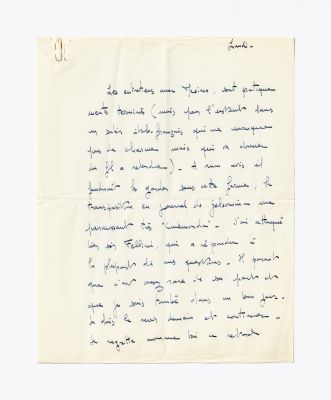 Lundi -
Les entretiens avec Masina, sont pratique
ments terminés (mais pour l'instant dans
un sabir italo-français qui ne manque
pas de charmes mais qui va donner
du fil à retordre). A mon avis il
faudrait les garder sous cette forme, la
transposition en journal de Gelsomina me
paraissant très "Cinémonde". J'ai attaqué
hier soir Fellini, qui a répondu à
la plupart de mes questions. Il paraît
que c'est assez rare de sa part et
que je suis tombé dans un bon jour.
Je dois le revoir demain et continuer.
Je regrette comme lui ce retard